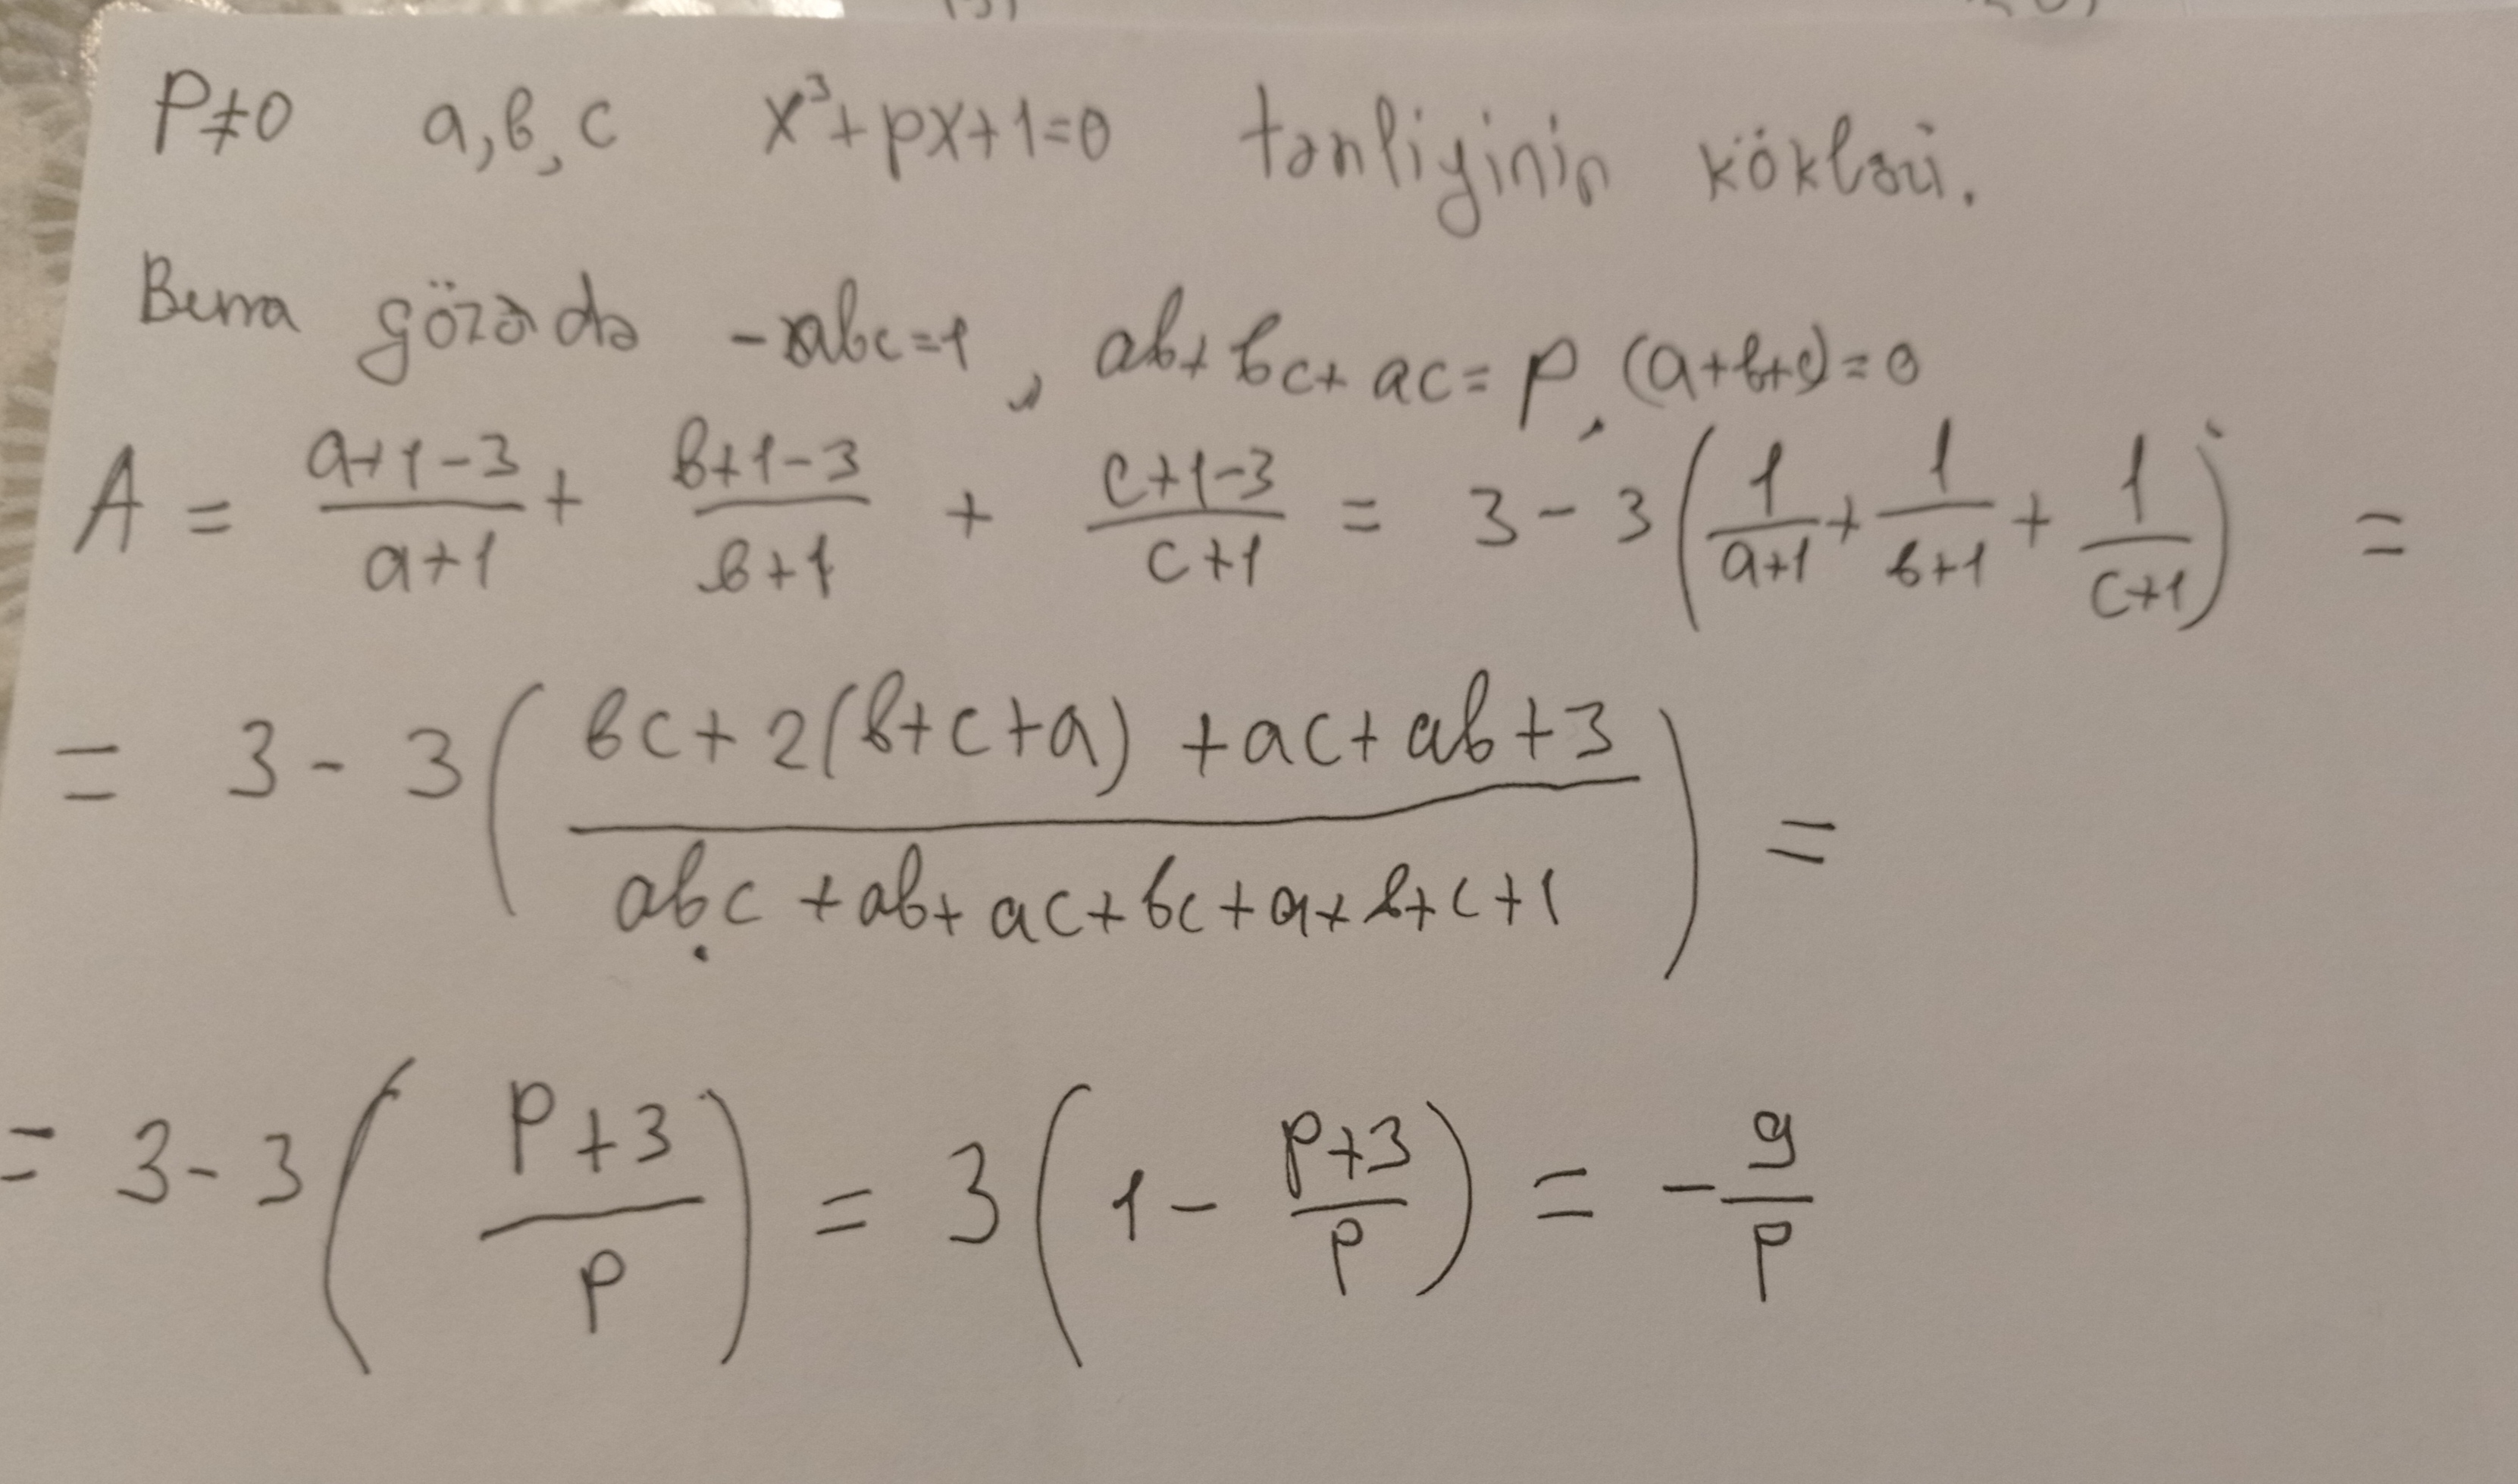 P≠0 a,b,c x³+px+1=0 tənliyinin kökləri.
görə də -abc=1, ab+bc+ac=p, (a+b+c)=0
A = (a+1-3)/(a+1) + (b+1-3)/(b+1) + (c+1-3)/(c+1) = 3-3(1/(a+1)+1/(b+1)+1/(c+1)) =
= 3-3((bc+2(b+c+a)+ac+ab+3)/(abc+ab+ac+bc+a+b+c+1)) =
= 3-3((P+3)/P) = 3(1-(P+3)/P) = -9/P